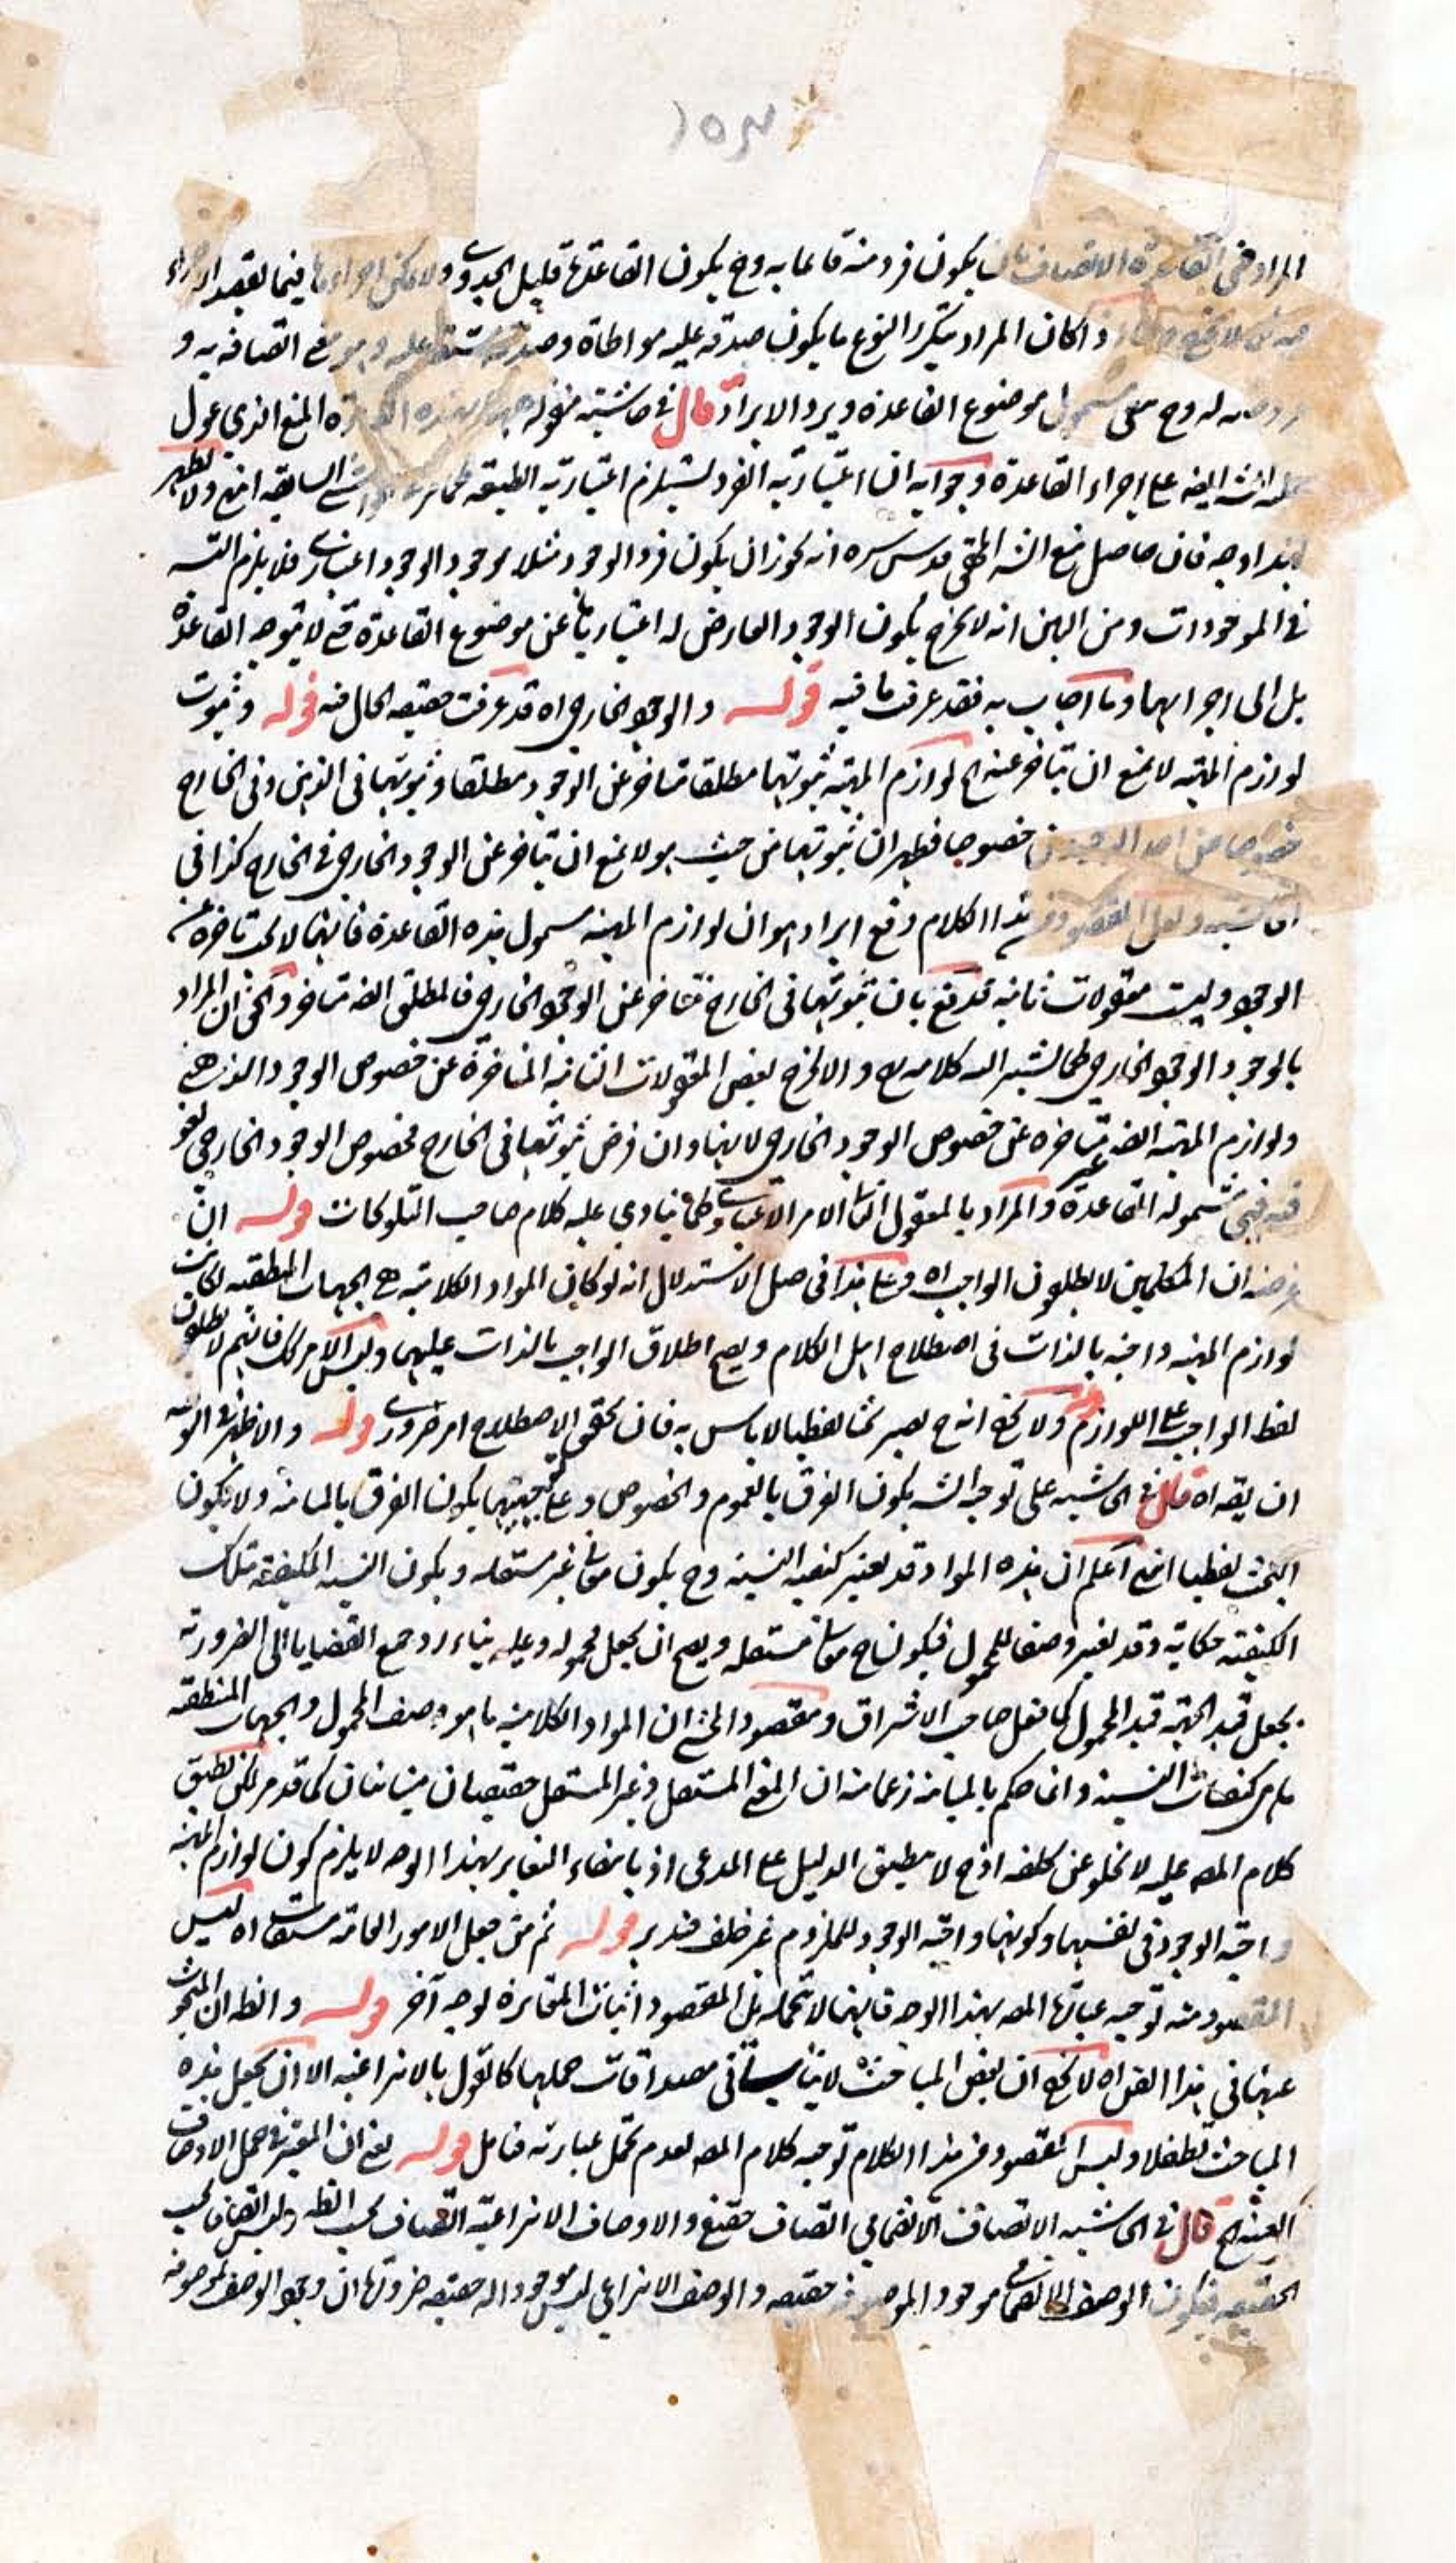 ١٥٣
المراد في القاعدة الاتصاف بان يكون فرد منه قائما به وح يكون القاعدة قليل الجدوى ولا يمكن اجراءها فيما
اذا كان المراد بتكرر النوع ما يكون صدقه عليه مواطاة وصدقه عليه وهو معنى اتصافه به و
له وح معنى شمول موضوع القاعدة ويرد الايراد قال في حاشيته قوله المنع الذي عول
على اجراء القاعدة وجوابه ان اعتبارية الفرد يستلزم اعتبارية الطبيعة السابقة انتهى ولا يظهر
لهذا وجه فان حاصل منع الشه المحقق قدس سره انه يجوز ان يكون فرد الوجود مثلا موجود الوجود اعتباري فلا يلزم التسـ
في الموجودات ومن البين انه لا يخرج بكون الوجود العارض له اعتباريا عن موضوع القاعدة حتى لا يتوجه القاعدة
بل الى اجرائها وما اجاب به فقد عرفت ما فيه قوله والوجود الخارجي اه قد عرفت حقيقة الحال فيه قوله وثبوت
لوازم المهية لا يمنع ان يتاخر عنه الخ لوازم المهية ثبوتها مطلقا متاخر عن الوجود مطلقا وثبوتها في الذهن وفي الخارج
خصوصا عن احد الوجودين خصوصا فظهر ان ثبوتها من حيث هو لا يمنع ان يتاخر عن الوجود الخارجي في الخارج كذا في
الحاشية ولعل المقصود من هذا الكلام دفع ايراد هو ان لوازم المهية شمول هذه القاعدة فانها لا يجب تاخره عن
الوجود وليست معقولات ثانية فدفع بان ثبوتها في الخارج متاخر عن الوجود الخارجي فالمطلق ايضا متاخر والحق ان المراد
بالوجود الوجود الخارجي كما يشير اليه كلامه وح والا لخرج بعض المعقولات الثانية المتاخرة عن خصوص الوجود الذهني
ولوازم المهية ايضا متاخرة عن خصوص الوجود الخارجي لانها وان فرض ثبوتها في الخارج فخصوص الوجود الخارجي لغو
فيه فبقي شموله القاعدة والمراد بالمعقول الثاني الامر الاعتباري كما ينادي عليه كلام صاحب التلويحات قوله ان
غرضه ان المتكلمين لا يطلقون الواجب اه وعلى هذا في حمل الاستدلال انه لو كان المواد الكلامية هي الجهات المنطقية لكانت
لوازم المهية واجبة بالذات في اصطلاح اهل الكلام ويصح اطلاق الواجب بالذات عليها وليس الامر كك فانهم لا يطلقون
لفظ الواجب على اللوازم ولا يخفى انه ح يصير بحثا لفظيا لا باس به فان تحقق الاصطلاح امر ضروري قوله والاظهر في الوجه
ان يقه اه قال في الحاشية على توجيه الشه يكون الفرق بالعموم والخصوص وعلى توجيهنا يكون الفرق بالمباينة ولا يكون
البحث لفظيا انتهى اعلم ان هذه المواد قد يعتبر كيفية النسبة وح يكون معاني غير مستقلة ويكون النسبة المكيفة بتلك
الكيفية حكاية وقد يعتبر وصفا للمحمول فيكون ح معان مستقلة ويصح ان يجعل محمولة وعليه بناء رد جمع القضايا الى الضرورية
بجعل قيد الجهة قيد المحمول كما فعل صاحب الاشراق ومقصود المحشي ان المواد الكلامية ما هو وصف المحمول والجهات المنطقية
ما هي كيفيات النسبة وانما حكم بالمباينة زعما منه ان المعنى المستقل وغير المستقل حقيقتان متباينتان كما قد مر لكن تطبيق
كلام المصـ عليه لا يخلو عن كلفه اذ ح لا ينطبق الدليل على المدعى اذ بانتفاء التغاير بهذا الوجه لا يلزم كون لوازم المهية
واجبة الوجود في نفسها وكونها واجبة الوجود للملزوم غير خلف فتدبر قوله ثم من جعل الامور العامة مشتقات اه ليس
المقصود منه توجيه عبارة المصـ بهذا الوجه فانها لا تحمله بل المقصود اثبات المغايرة لوجه آخر قوله والظ ان المبحوث
عنها في هذا الفن اه لا يخفى ان بعض المباحث لا يتاتى في مصداقات حملها كالقول بالانتزاعية الا ان يجعل هذه
المباحث تطفلا وليس المقصود من هذا الكلام توجيه كلام المصـ لعدم تحمل عبارته فتامل قوله يعني ان المعتبر في حمل الاوصاف
العشرة الخ قال في الحاشية الاتصاف الانضمامي اتصاف حقيقي والاوصاف الانتزاعية اتصاف بحسب الظـ وليس اتصاف بحسب
الحقيقة فيكون الوصف الانضمامي موجود الموصوفه حقيقة والوصف الانتزاعي ليس موجودا له حقيقة ضرورة ان وجود الوصف لموصوفه